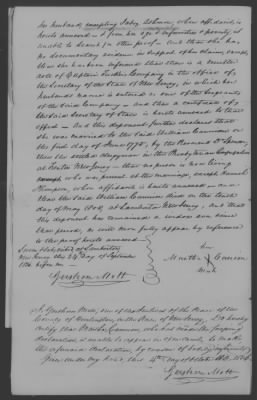 her husband, excepting Toby
hereto annexed — from her age & infirmities she is
unable to search for other proof — and that she has
no documentary evidence in support of her claim, except
that she has been informed that there is a muster
roll of Captain Company in the office of
the Secretary of the State of New Jersey, in which her
husband's name is entered as one of the Sergeants
of the said Company — and that a certificate of
the said Secretary of State is hereto annexed to that
effect — And this deponent further declares that
she was married to the said William Cannon on
the first day of June 1778, by the Reverend Spencer
then the settled clergyman of the Presbyterian Congregation
at Trenton New Jersey — that no person is now living
except who was present at the marriage, except Hannah
whose affidavit is hereto annexed — and
that the said William Cannon died on the
day of May at Lamberton New Jersey, and that
this deponent has remained a widow ever since
that period, as will more fully appear by reference
to the proof hereto annexed
Sworn & subscribed at Lamberton
New Jersey this 24 day of September
1836 before me
her
Martha X Cannon
mark
Gershom Mott
I Gershom Mott, one of the Justices of the Peace of the
County of Hunterdon, in the State of New Jersey, Do hereby
certify that Martha Cannon, who has made the foregoing
declaration, is unable to appear in open court, to make
the aforesaid declaration by reason of bodily infirmity
Given under my hand, this 4th day of October AD. 1836
Gershom Mott